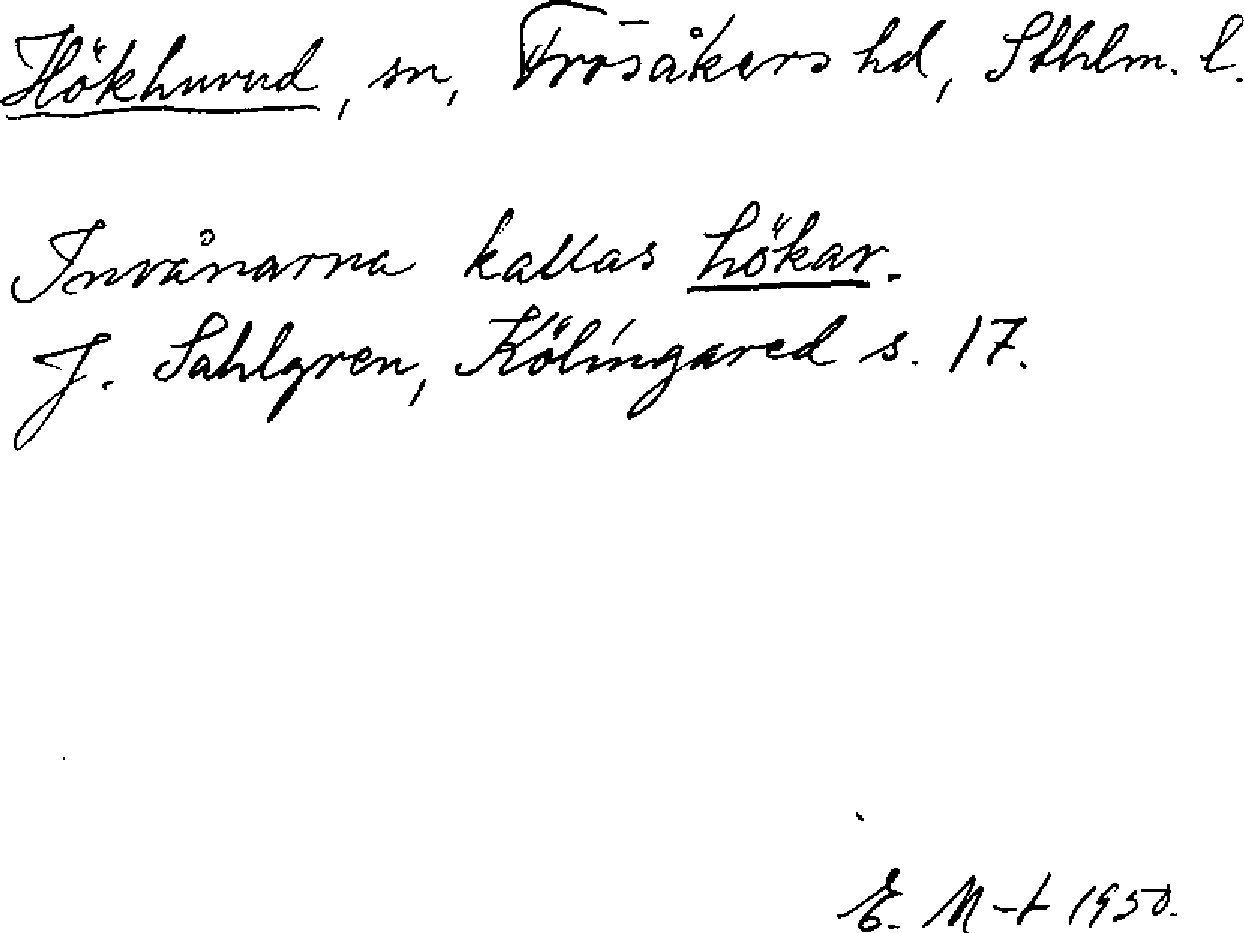 Hökhuvud, sn, Frösåkers hd, Sthlm. l.
Invånarna kallas hökar.
J. Sahlgren, Kölingared s. 17.
E. M-t 1950.